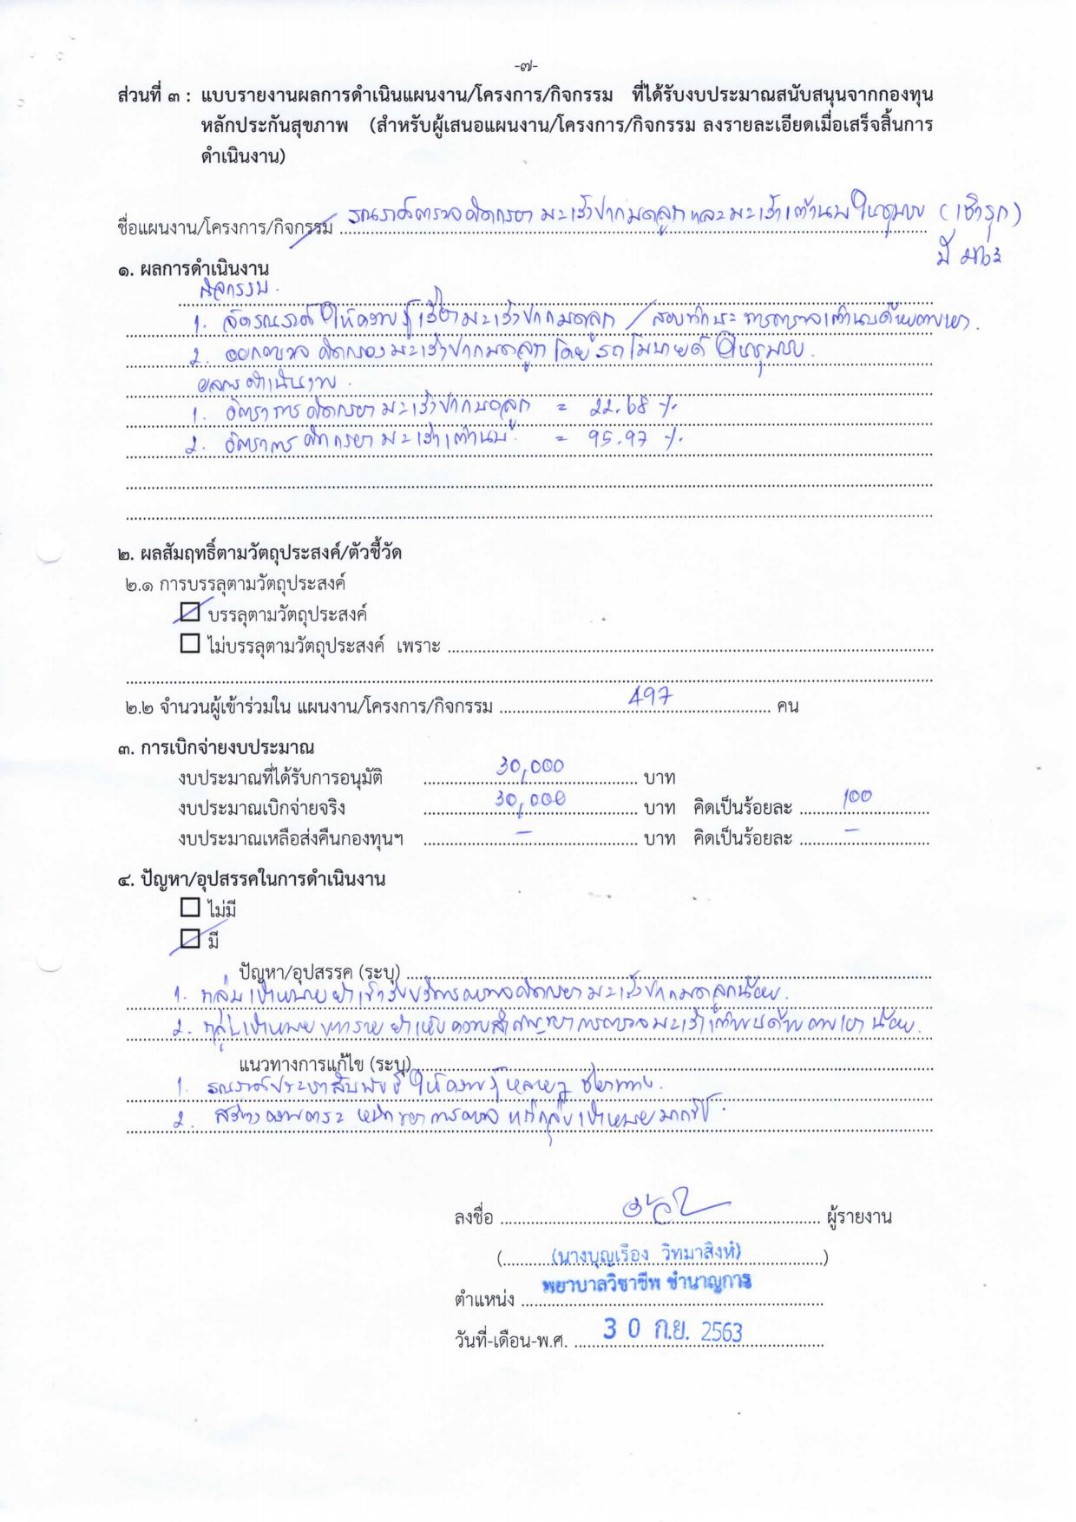 -๗-
ส่วนที่ ๓ : แบบรายงานผลการดำเนินแผนงาน/โครงการ/กิจกรรม ที่ได้รับงบประมาณสนับสนุนจากกองทุน
หลักประกันสุขภาพ (สำหรับผู้เสนอแผนงาน/โครงการ/กิจกรรม ลงรายละเอียดเมื่อเสร็จสิ้นการ
ดำเนินงาน)
ชื่อแผนงาน/โครงการ/กิจกรรม รณรงค์ตรวจคัดกรองมะเร็งปากมดลูกและมะเร็งเต้านมในชุมชน (เชิงรุก)
ปี ๒๕๖๓
๑. ผลการดำเนินงาน
กิจกรรม
1. จัดรณรงค์ให้ความรู้เรื่องมะเร็งปากมดลูก / สอนทักษะการตรวจเต้านมด้วยตนเอง.
2. ออกตรวจคัดกรองมะเร็งปากมดลูกโดยรถโมบายล์ในชุมชน.
ผลการดำเนินงาน.
1. อัตราการคัดกรองมะเร็งปากมดลูก = 22.68 %
2. อัตราการคัดกรองมะเร็งเต้านม = 95.97 %
๒. ผลสัมฤทธิ์ตามวัตถุประสงค์/ตัวชี้วัด
๒.๑ การบรรลุตามวัตถุประสงค์
บรรลุตามวัตถุประสงค์
ไม่บรรลุตามวัตถุประสงค์ เพราะ
๒.๒ จำนวนผู้เข้าร่วมใน แผนงาน/โครงการ/กิจกรรม 497 คน
๓. การเบิกจ่ายงบประมาณ
งบประมาณที่ได้รับการอนุมัติ 30,000 บาท
งบประมาณเบิกจ่ายจริง 30,000 บาท คิดเป็นร้อยละ 100
งบประมาณเหลือส่งคืนกองทุนฯ - บาท คิดเป็นร้อยละ -
๔. ปัญหา/อุปสรรคในการดำเนินงาน
ไม่มี
มี
ปัญหา/อุปสรรค (ระบุ)
1. กลุ่มเป้าหมายเข้ารับบริการตรวจคัดกรองมะเร็งปากมดลูกน้อย.
2. กลุ่มเป้าหมายบางรายเห็นความสำคัญของการตรวจมะเร็งเต้านมด้วยตนเองน้อย.
แนวทางการแก้ไข (ระบุ)
1. รณรงค์ประชาสัมพันธ์ให้ความรู้หลายๆ ช่องทาง.
2. สร้างความตระหนักของการตรวจแก่กลุ่มเป้าหมายมากขึ้น.
ลงชื่อ ผู้รายงาน
(นางบุญเรือง วิทมาสิงห์)
พยาบาลวิชาชีพ ชำนาญการ
ตำแหน่ง
วันที่-เดือน-พ.ศ. 30 ก.ย. 2563